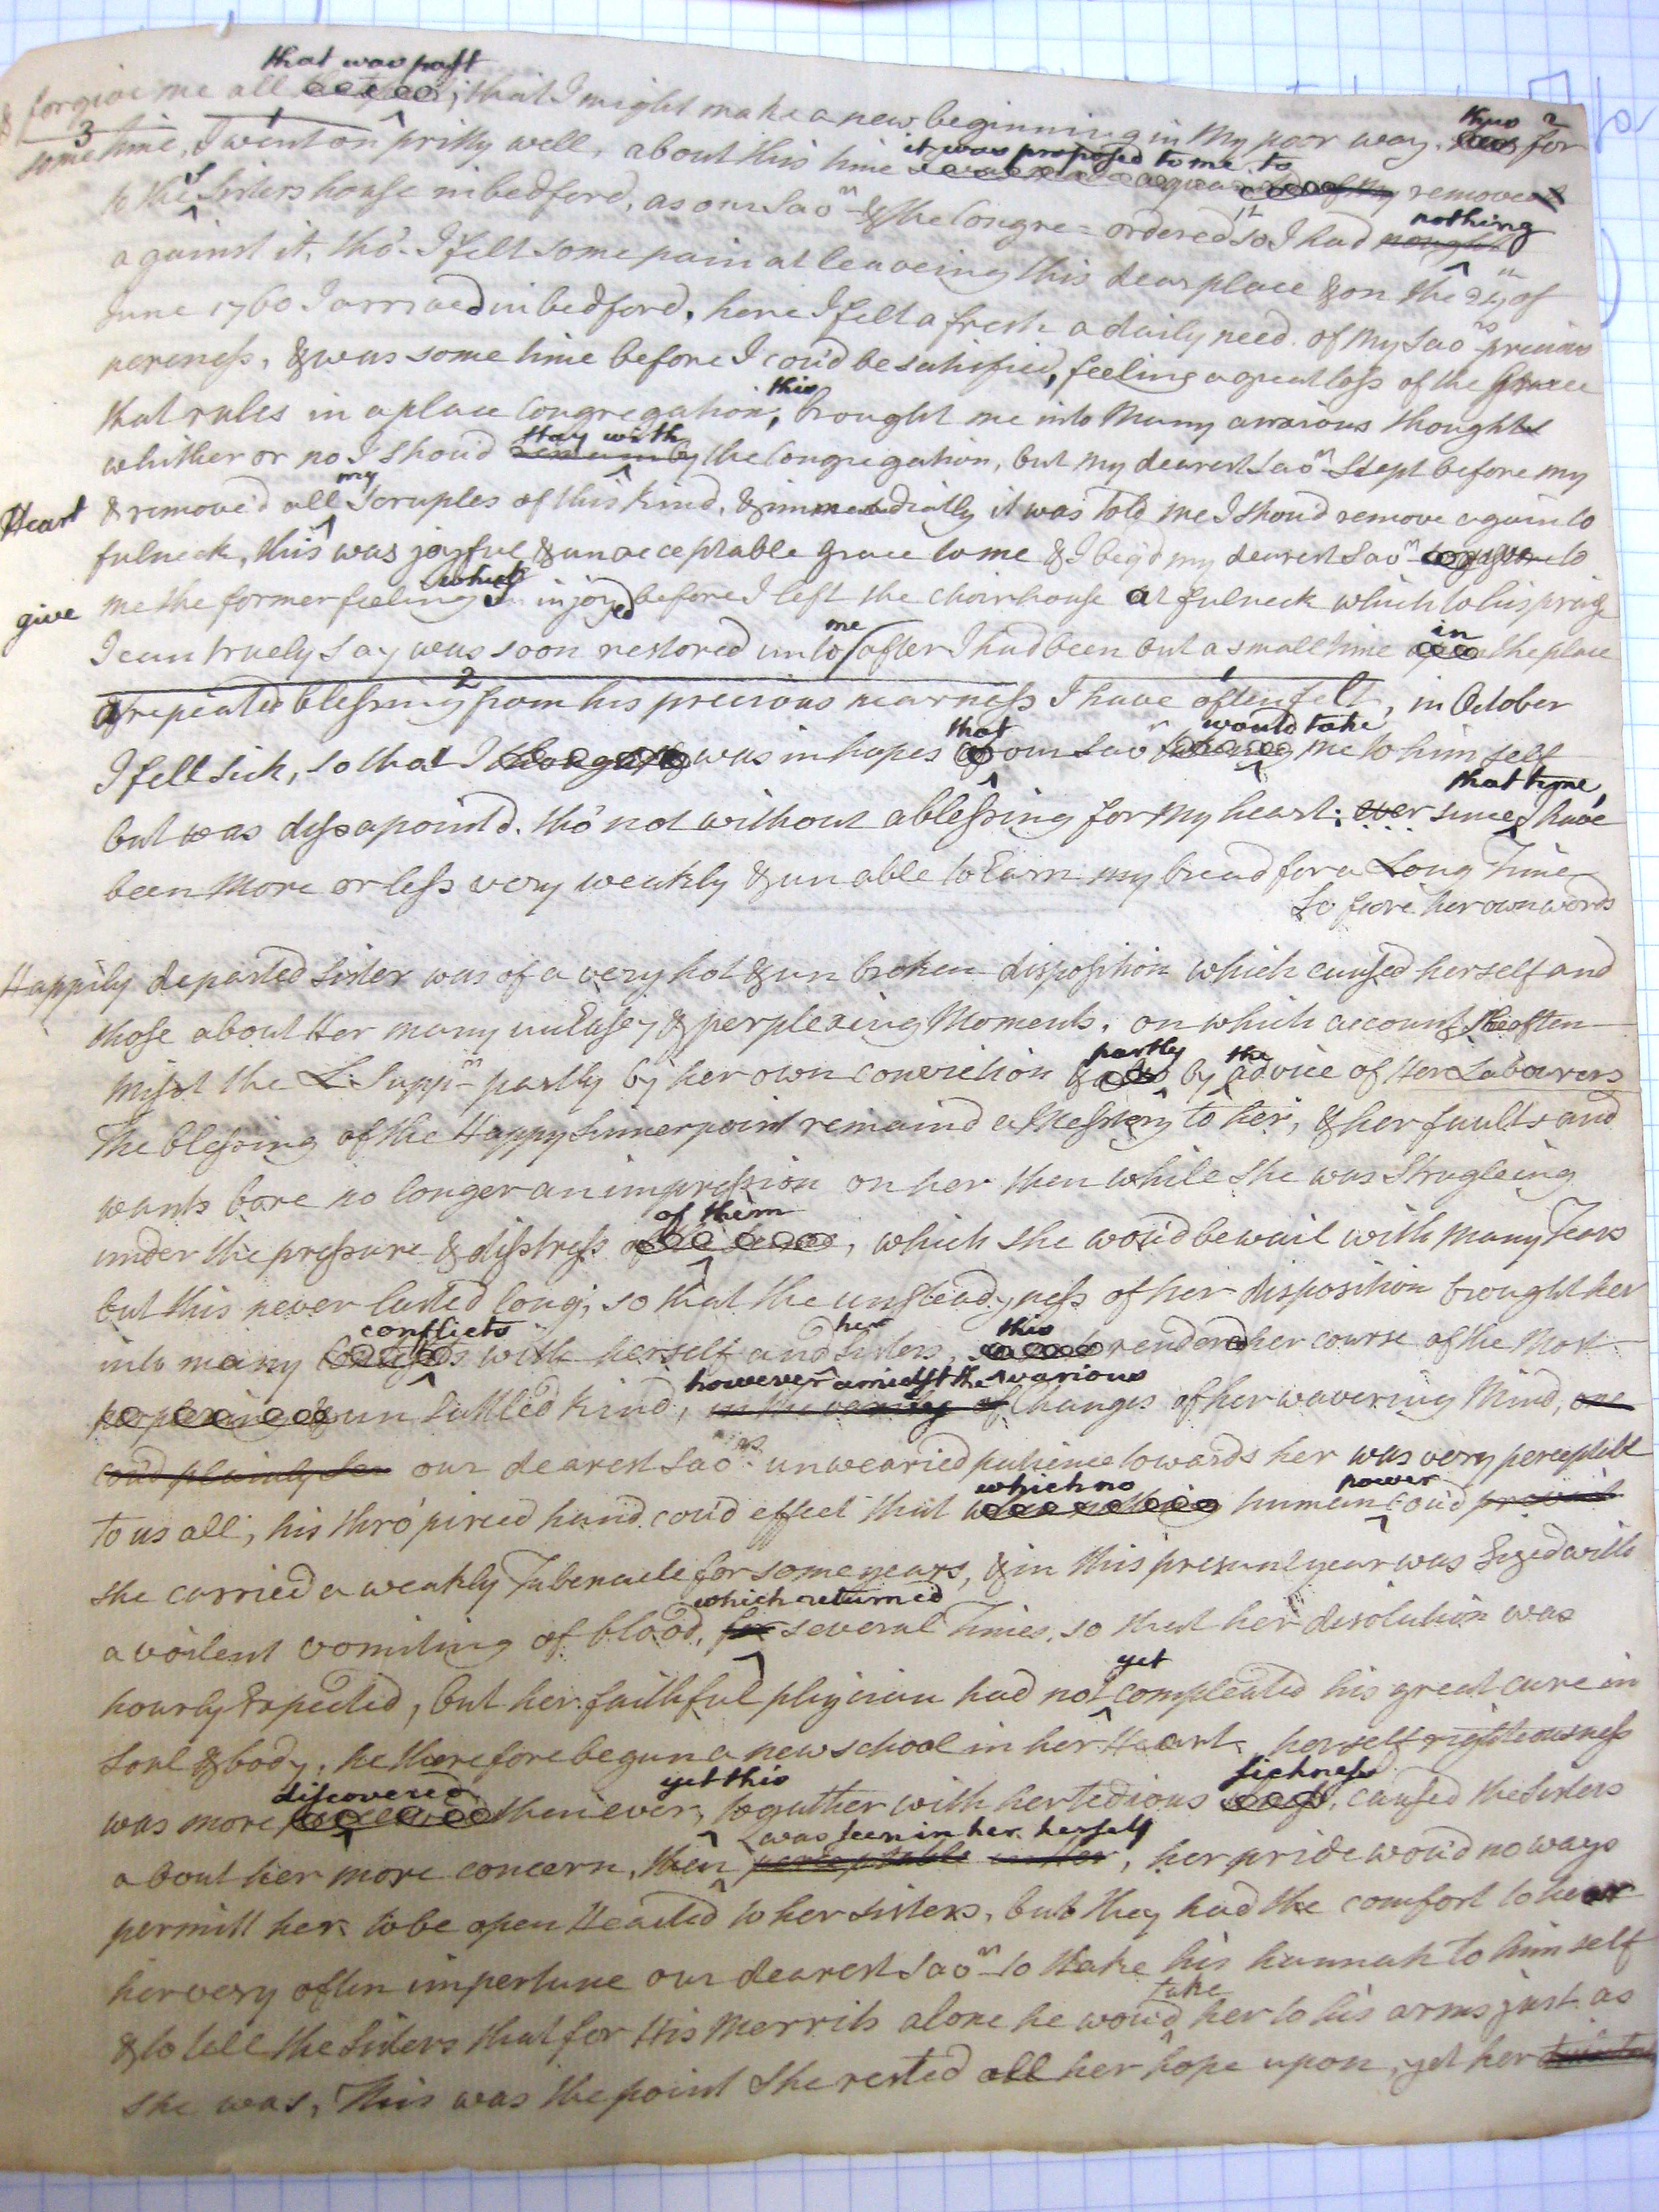 that was past
& forgive me all ; that I might make a new beginning in My poor way. thus 2 for
3 some time, I went on 1 pritty well, about this time it was proposed to me to remove
to the Sisters house in bedford, as our Sao^r & the Congre= ordered it so I had nought nothing
against it, tho' I felt some pain at leaveing this dear place & on the 24^th of
June 1760 I arrived in bedford, here I felt a fresh a daily need of My Sao^rs precious
nereness, & was some time before I cou'd be satisfied, feeling a great loss of the Grace
that rules in a place Congregation, this brought me into Many anxious thoughts
whither or no I shou'd remain by stay with the Congregation, but My dearest Sao^r Stept before my
Heart & remove'd all my Scruples of this kind, & immediatly it was told me I shou'd remove again to
fulneck, this was joyful & an acceptable Grace to me & I beg'd my dearest Sao^r to
give me the former feeling which I injoyed before I left the Choirhouse at fulneck which to his praise
I can truely say was soon restored unto me after I had been but a small time in the place
a repeated blessing 2 from his precious nearness I have often felt 1, in October
I fell sick, so that I was in hopes that our Sao^r would take me to him self
but was disapoint'd. tho' not without a blessing for My heart: ever since that time, I have
been More or less very weakly & unable to Earn my bread for a Long Time
So far her own words
Happily departed Sister was of a very hot & un broken disposition which caused herself and
those about Her many unEasey & perplexing Moments, on which account She often
mist the L: Supp^r partly by her own conviction & partly by the advice of Her Labourers
The blessing of the Happy Sinner point remaind a Mestery to her, & her faults and
wants bore no longer an impression on her then while She was Strugleing
under the pressure & disstress of them, which She wou'd bewail with Many Tears
but this never lasted long, so that the unsteadyness of her disposition brought her
into many conflicts with herself and her Sisters, this renderd her course of the Most
perplexing & un Settled kind, in the variety of however amidst the various Changes of her wavering Mind, one
cou'd plainly See our dearest Sao^rs unwearied patience towards her was very perceptible
to us all, his thro' pirced hand cou'd effect that which no human power cou'd prevail
she carried a weakly Tabernacle for some years, & in this present year was Sized with
a voilent vomiting of blood, for which returned several Times. so that her disolution was
hourly Expected, but her faithful phycician had not yet compleated his great cure in
Soul & body, he therefore begun a new school in her Heart. her self righteousness
was more discovered then ever, yet this together with her tedious sickness, caused the Sisters
about her more concern, then perceptable in her was seen in her herself, her pride wou'd no ways
permitt her to be open Hearted to her sisters, but they had the comfort to hear
her very often impertune our dearest Sao^r to take his hannah to him self
& to tell the Sisters that for His Merrits alone he wou'd take her to his arms just as
she was, This was the point She rested all her hope upon, yet her